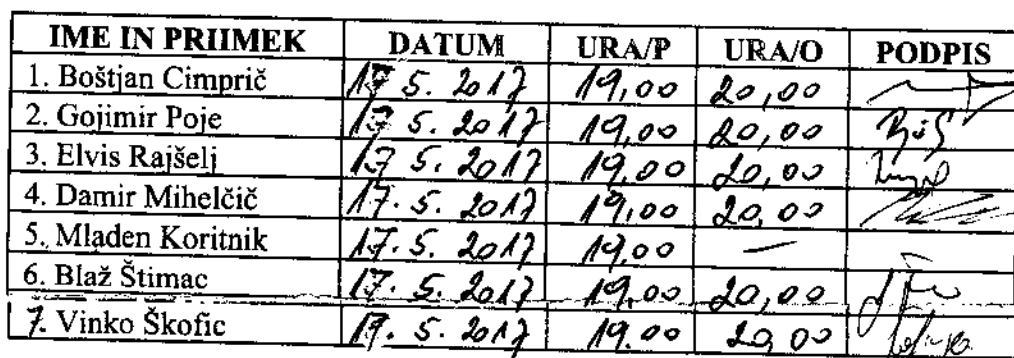 IME IN PRIIMEK DATUM URA/P URA/O PODPIS
1. Boštjan Cimprič 17. 5. 2017 19,00 20,00
2. Gojimir Poje 17. 5. 2017 19,00 20,00
3. Elvis Rajšelj 17. 5. 2017 19,00 20,00
4. Damir Mihelčič 17. 5. 2017 19,00 20,00
5. Mladen Koritnik 17. 5. 2017 19,00 —
6. Blaž Štimac 17. 5. 2017 19,00 20,00
7. Vinko Škofic 17. 5. 2017 19.00 20,00